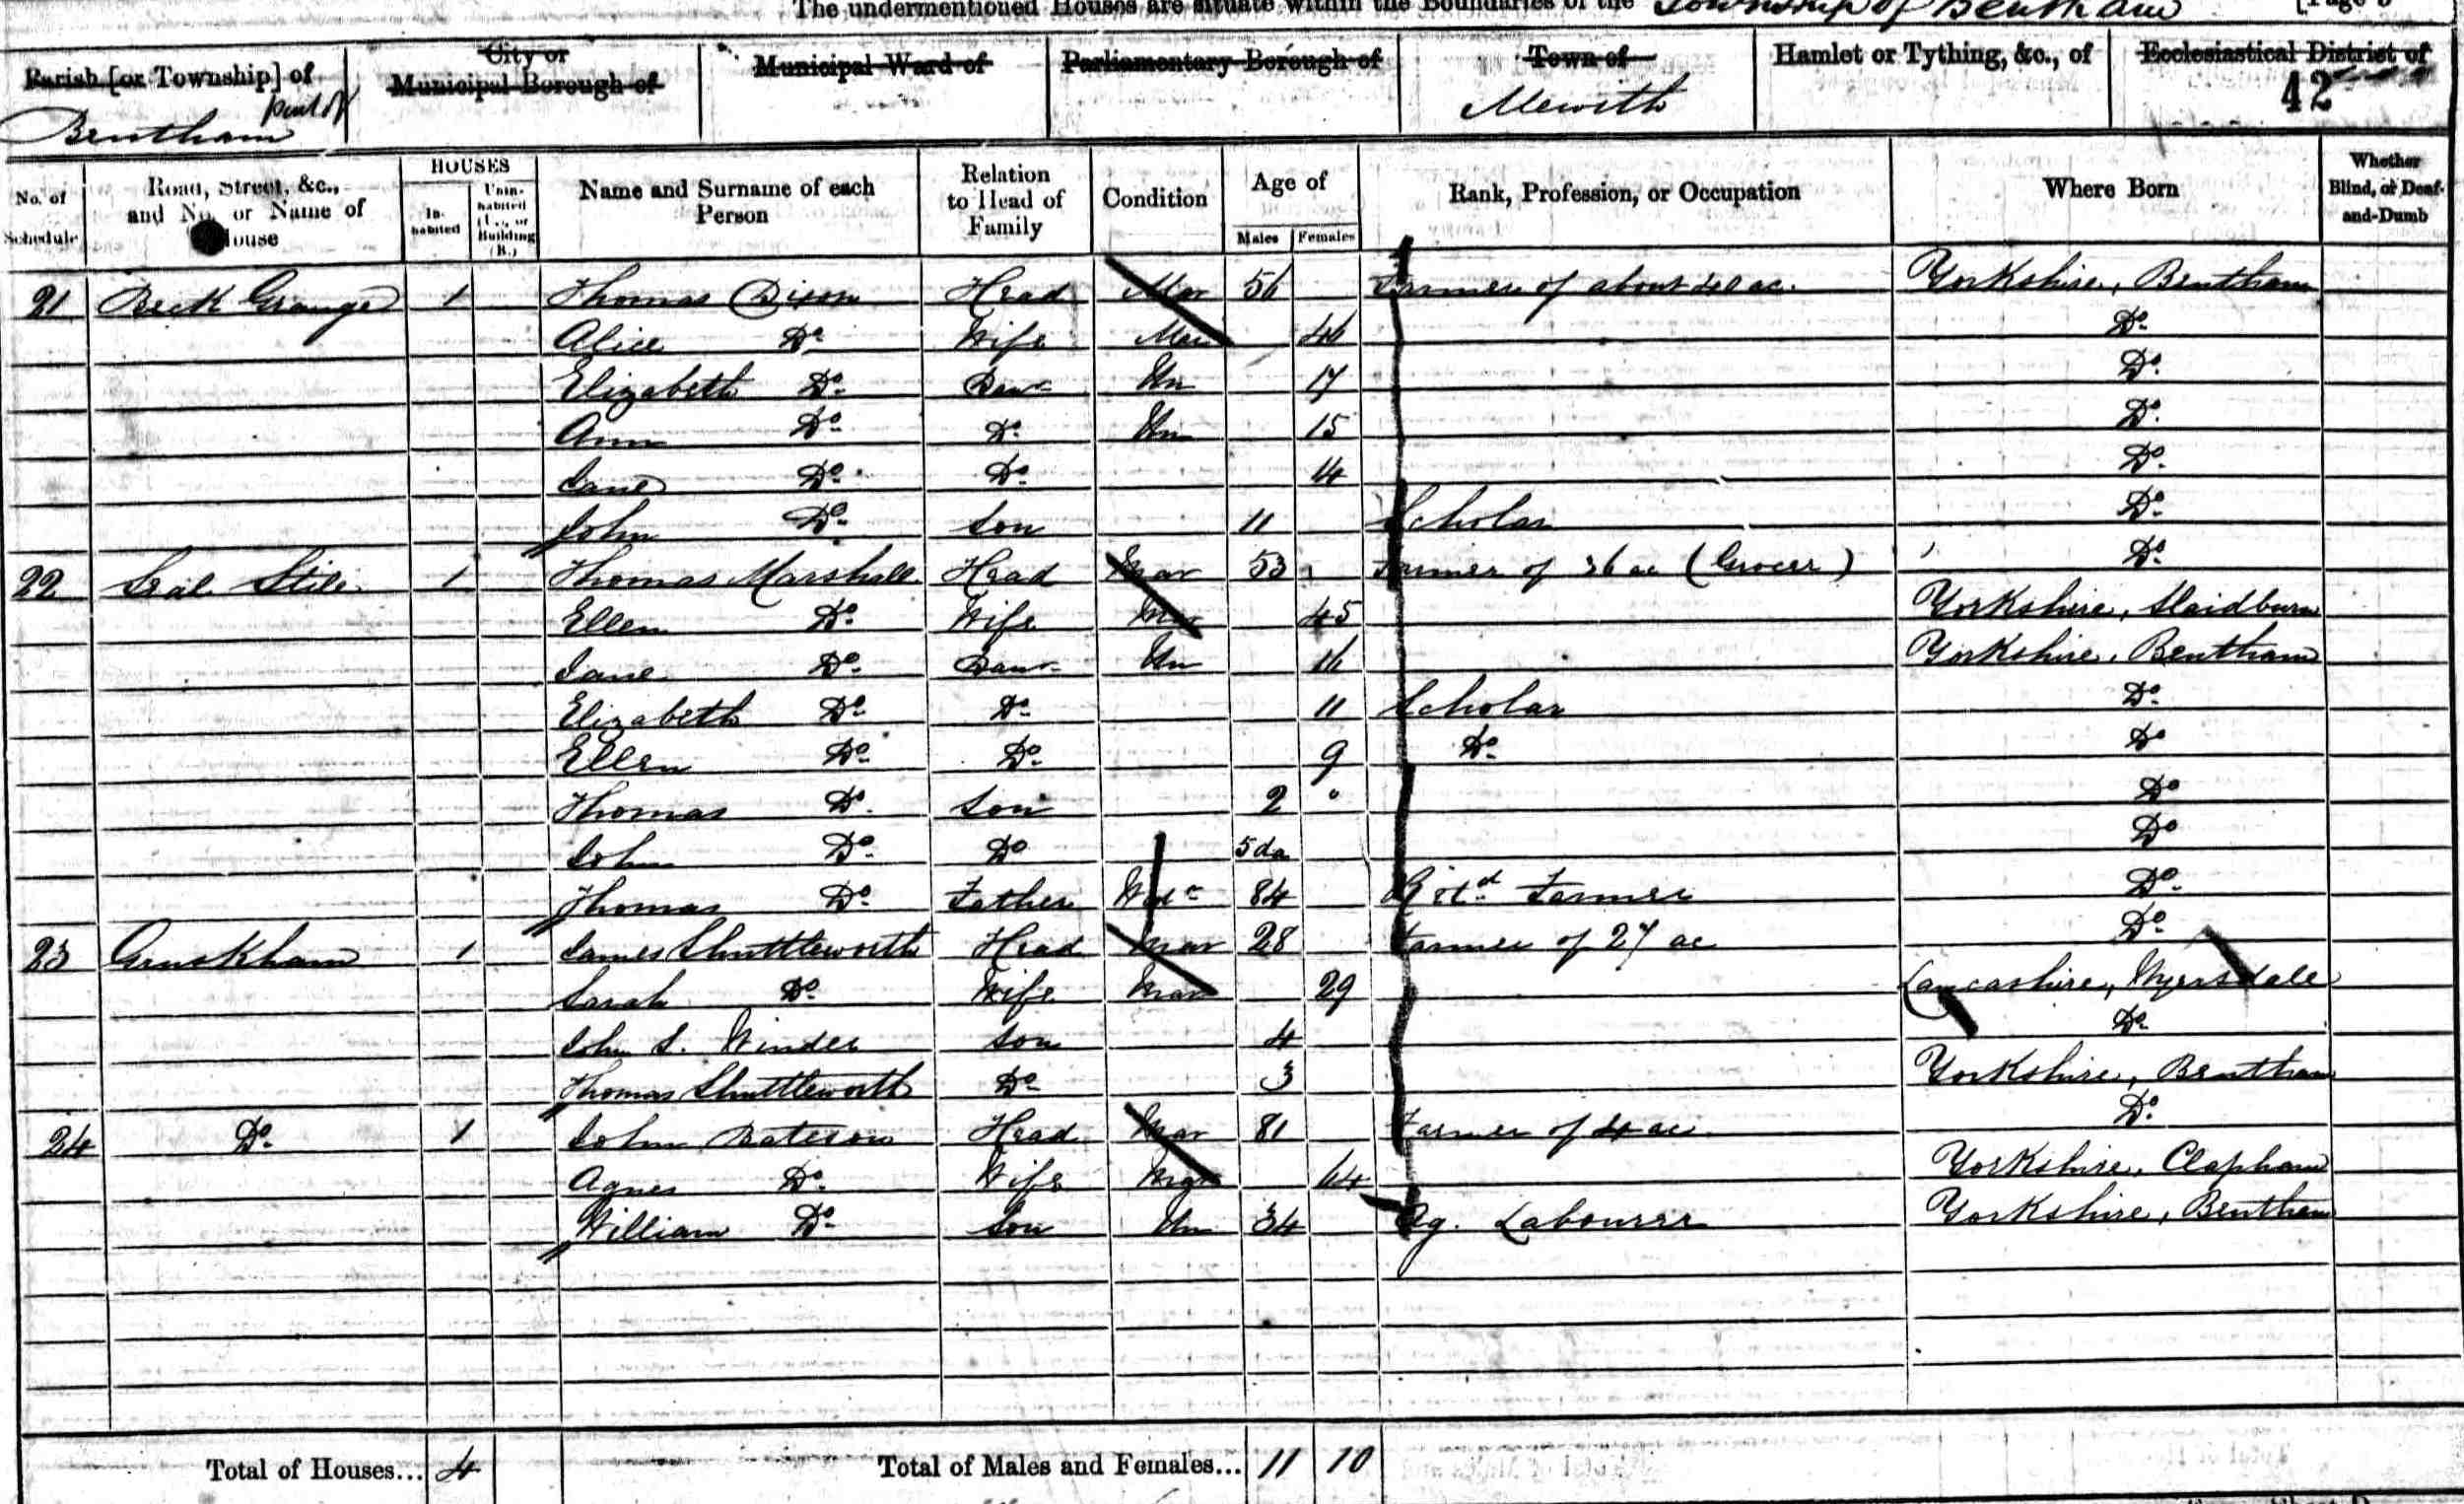 The undermentioned Houses are situate within the Boundaries of the Township of Bentham [Page
Parish [or Township] of City or Municipal Borough of Municipal Ward of Parliamentary Borough of Town of Hamlet or Tything, &c., of Ecclesiastical District of
part of Bentham Mewith 42
No. of Schedule Road, Street, &c., and No. or Name of House HOUSES Inhabited Uninhabited (U.), or Building (B.) Name and Surname of each Person Relation to Head of Family Condition Age of Males Females Rank, Profession, or Occupation Where Born Whether Blind, or Deaf-and-Dumb
21 Beck Grange 1 Thomas Dixon Head Mar 56 Farmer of about 40 ac. Yorkshire, Bentham
Alice Do. Wife Mar 46 Do.
Elizabeth Do. Daur Un 17 Do.
Ann Do. Do. Un 15 Do.
Jane Do. Do. 14 Do.
John Do. Son 11 Scholar Do.
22 Seal Stile 1 Thomas Marshall Head Mar 53 Farmer of 36 ac (Grocer) Do.
Ellen Do. Wife Mar 45 Yorkshire, Slaidburn
Jane Do. Daur Un 16 Yorkshire, Bentham
Elizabeth Do. Do. 11 Scholar Do.
Ellen Do. Do. 9 Do. Do
Thomas Do. Son 2 Do
John Do. Do 5 da Do
Thomas Do. Father Widr 84 Retd Farmer Do.
23 Gruskham 1 James Shuttleworth Head Mar 28 Farmer of 27 ac Do.
Sarah Do. Wife Mar 29 Lancashire, Wyersdale
John S. Winder Son 4 Do.
Thomas Shuttleworth Do. 3 Yorkshire, Bentham
24 Do. 1 John Bateson Head Mar 81 Farmer of 4 ac. Do.
Agnes Do. Wife Mar 64 Yorkshire, Clapham
William Do. Son Un 34 Ag. Labourer Yorkshire, Bentham
Total of Houses... 4 Total of Males and Females... 11 10